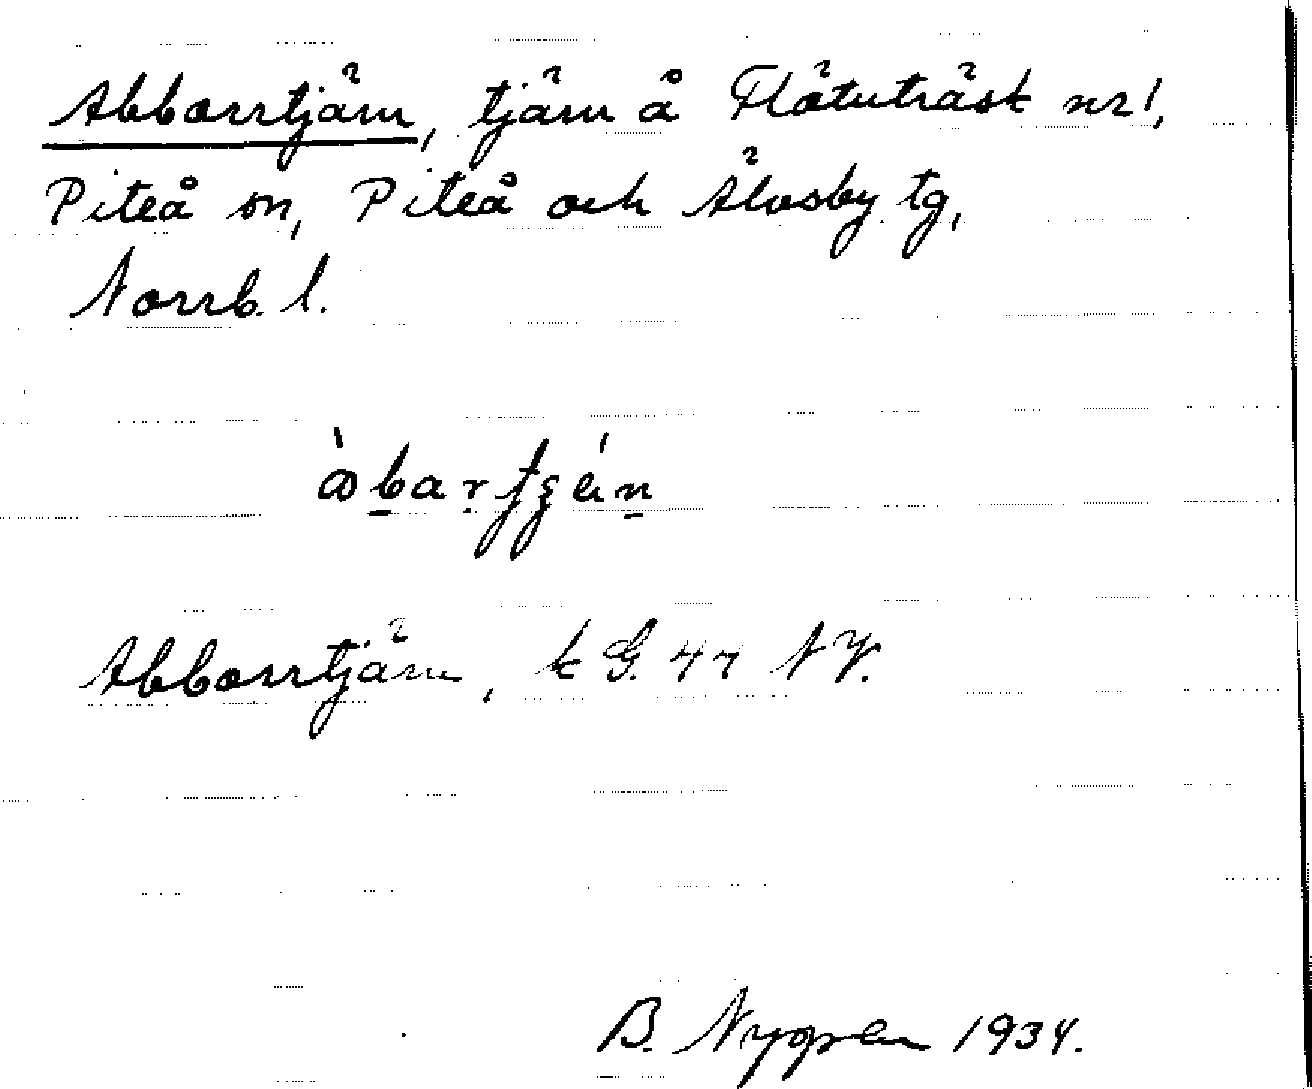 Abborrtjärn, tjärn å Flötuträsk nr 1,
Piteå sn, Piteå och Älvsby tg,
Norrb. l.
Abborrtjärn, k G. 47 NV.
B. Nygren 1934.